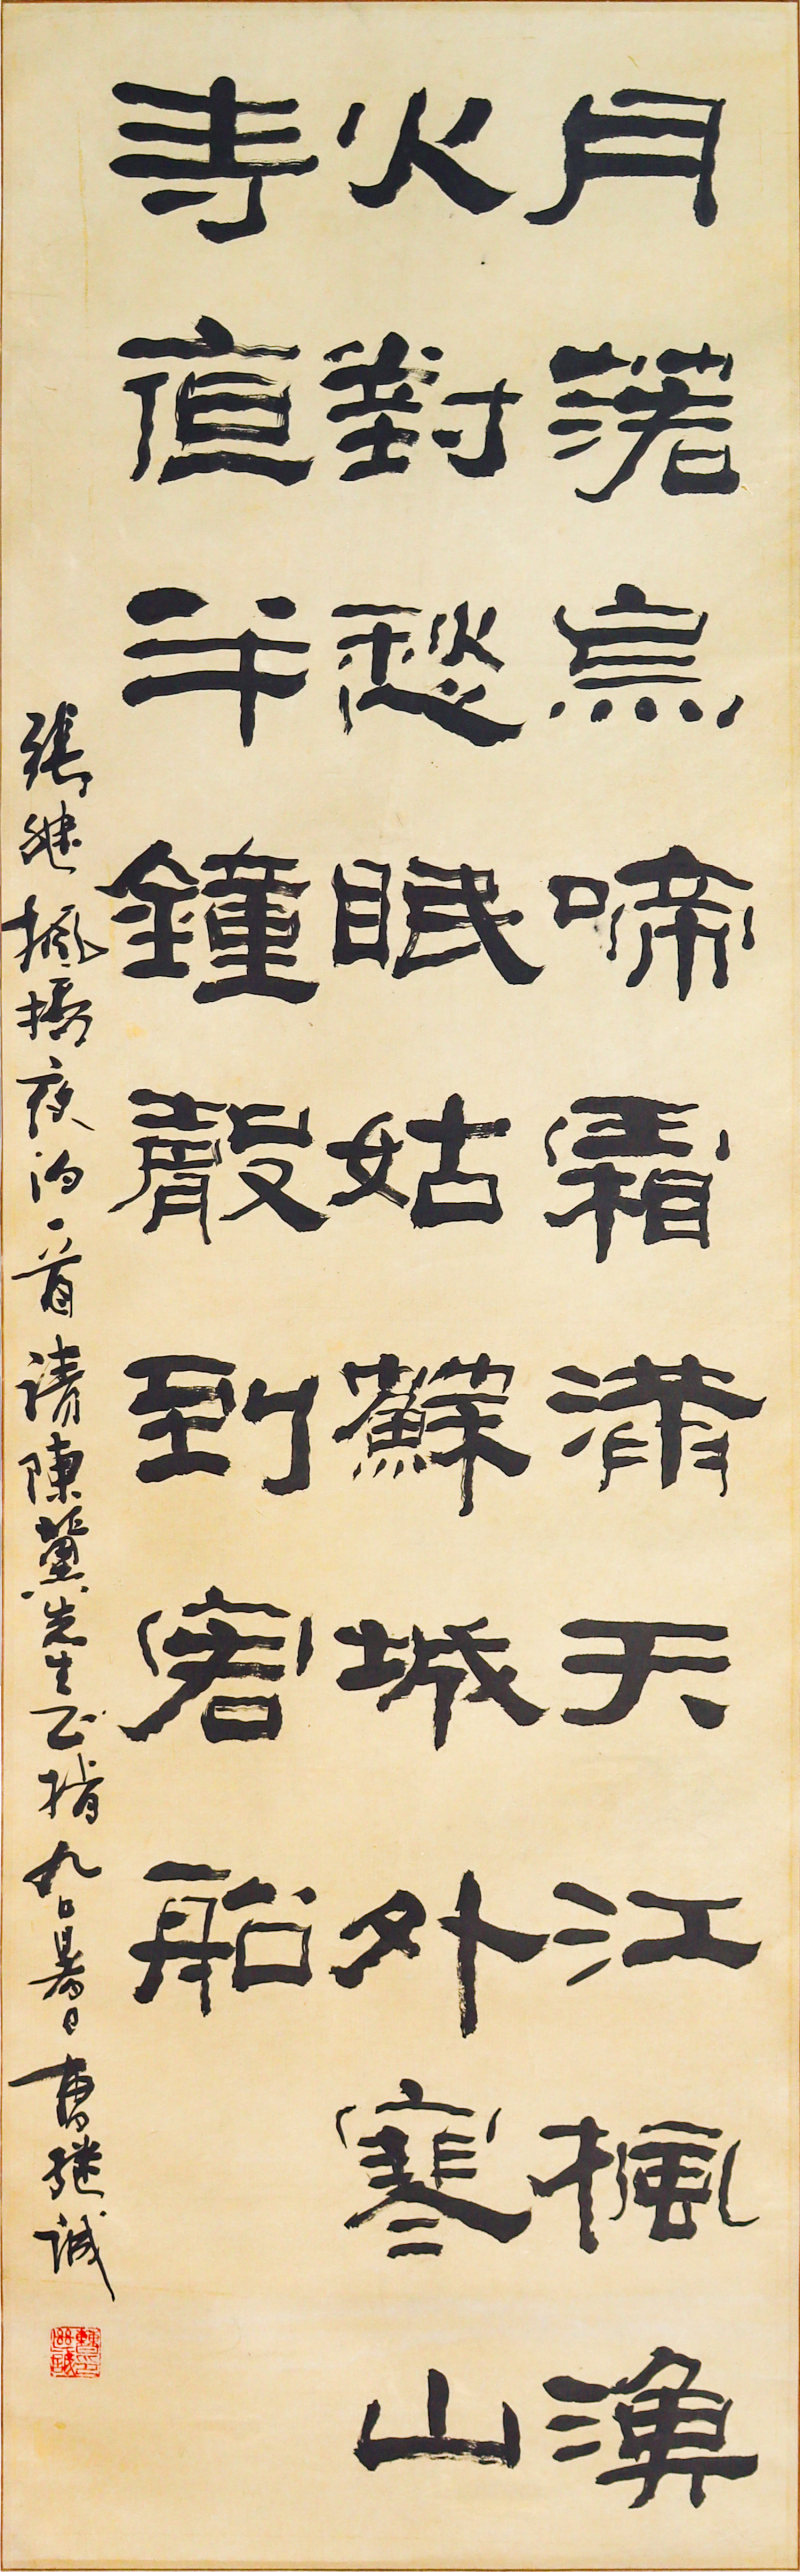 月落烏啼霜滿天江楓漁
火對愁眠姑蘇城外寒山
寺亱半鐘聲到客船
張继楓橋夜泊一首請陳先生正指九〇暑日曹继诚